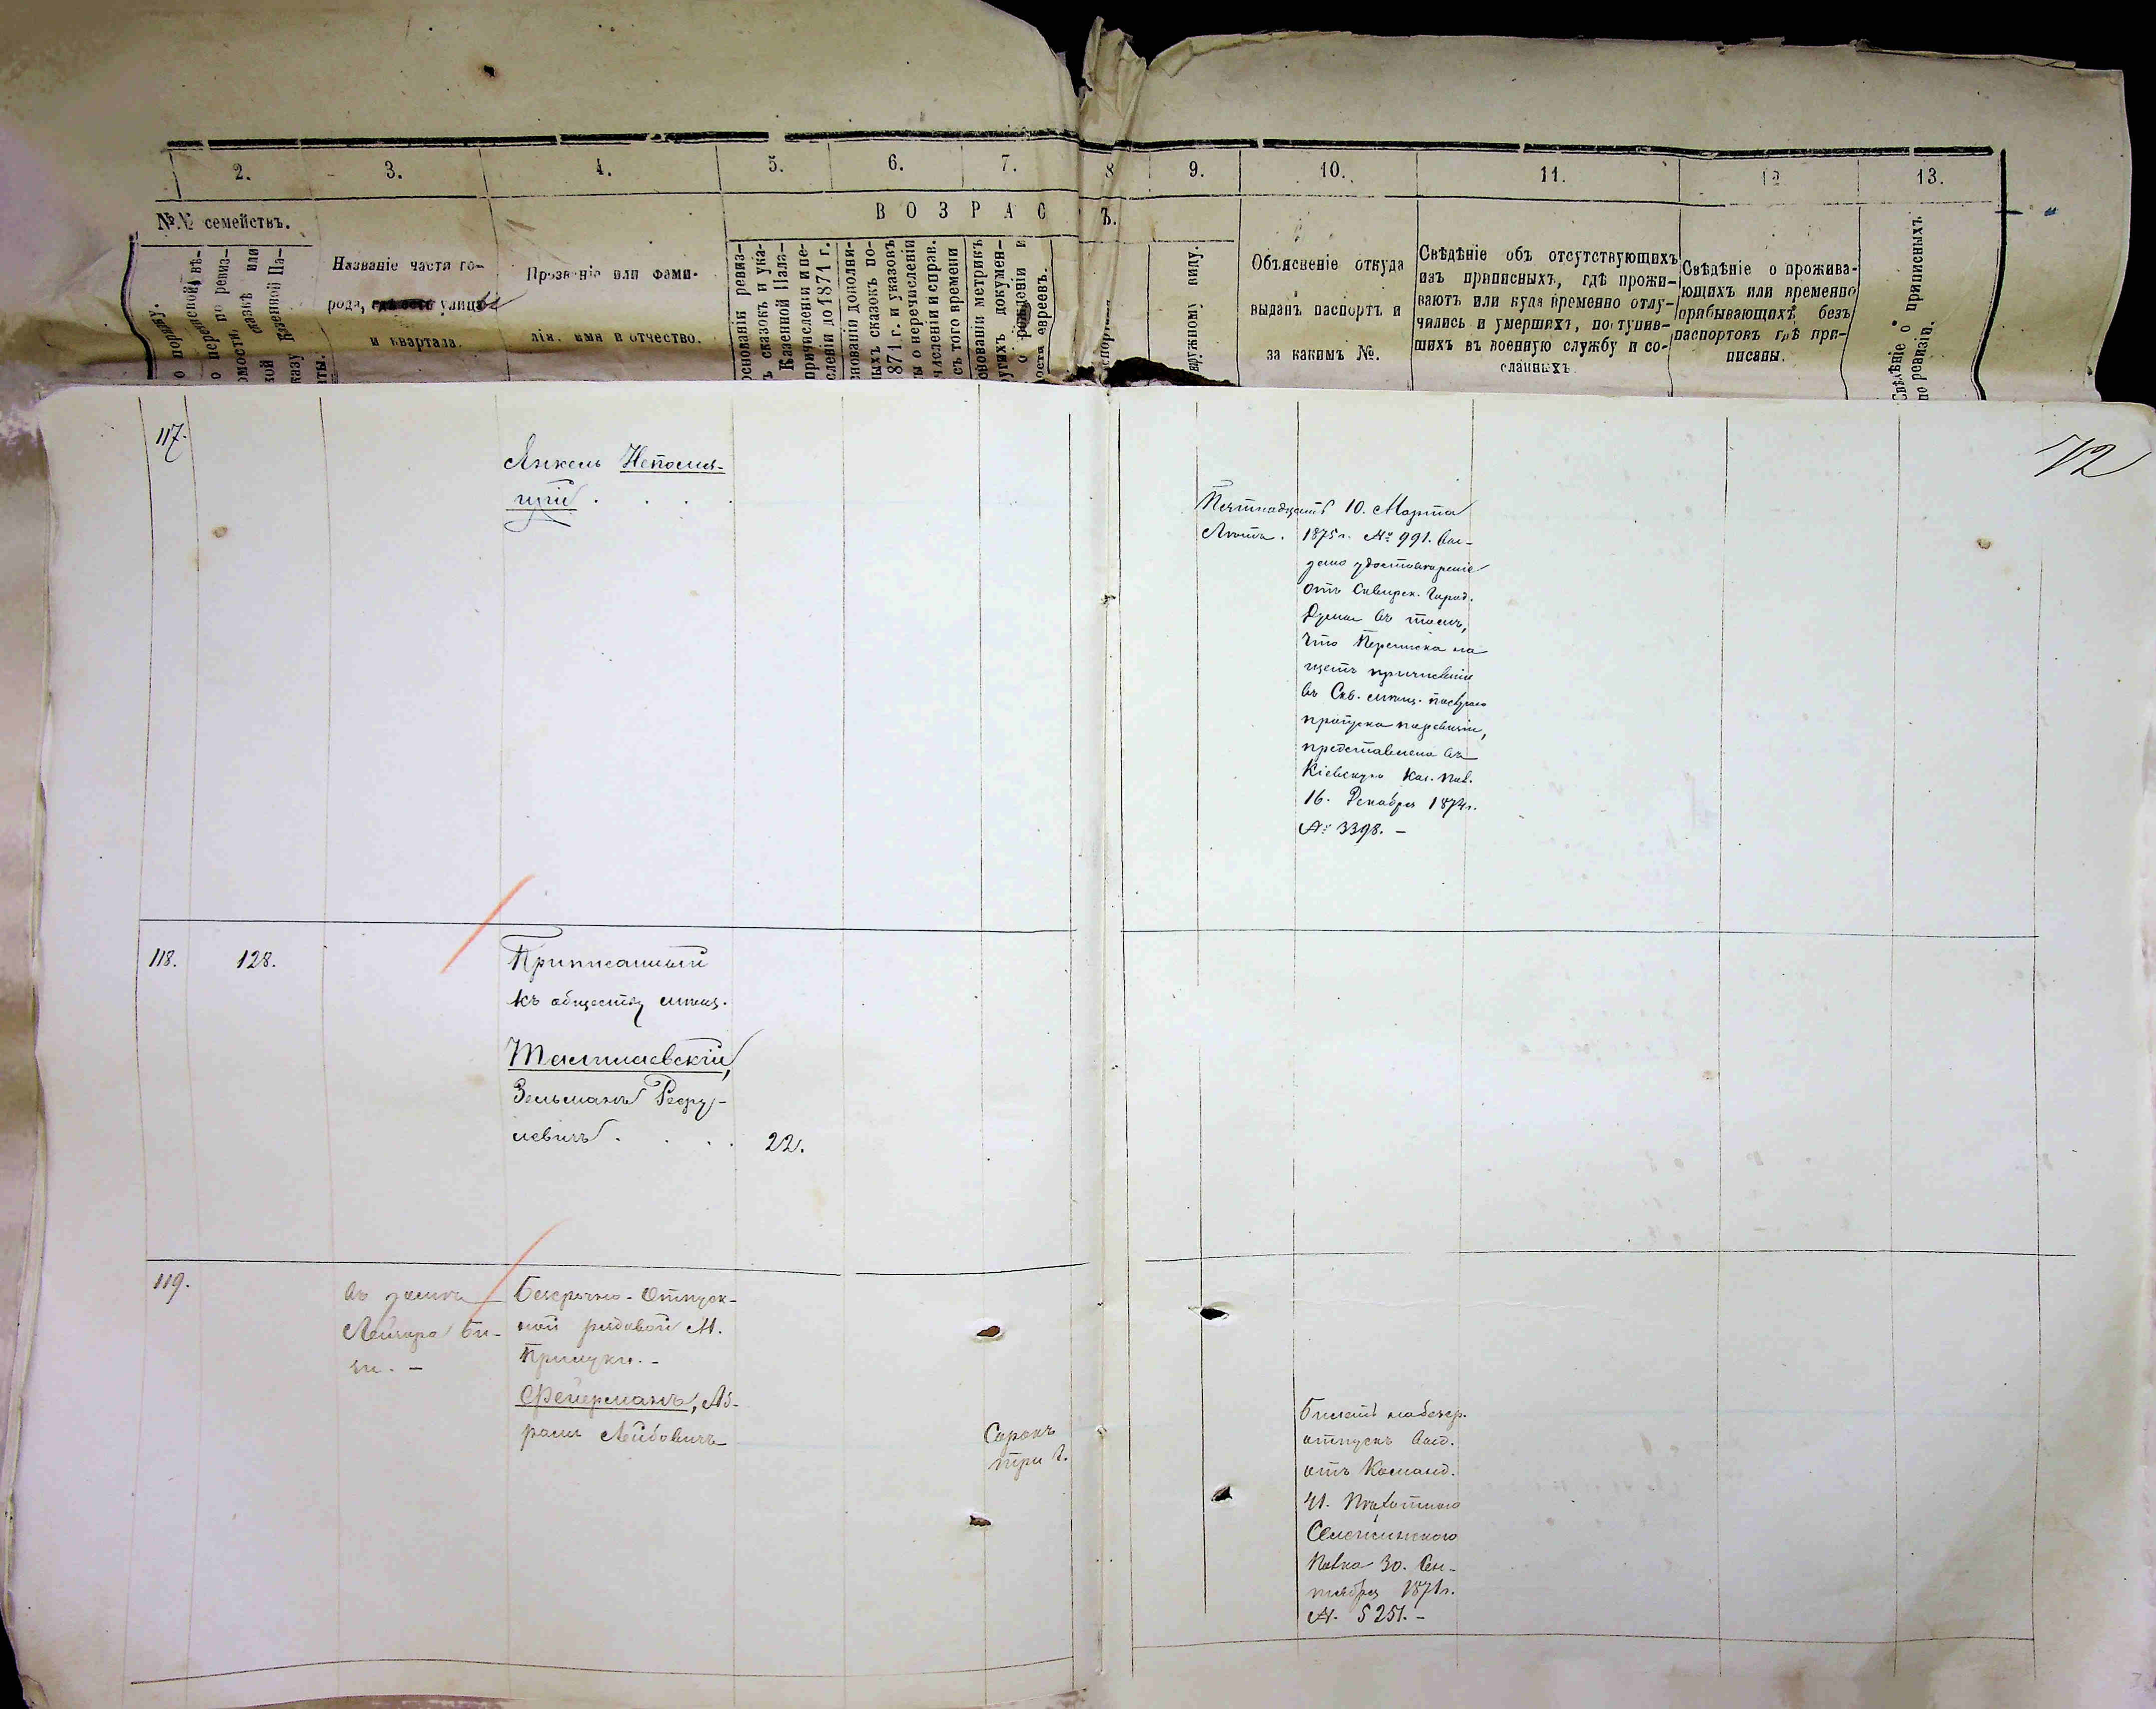 2. 3. 4. 5. 6. 7. 8 9. 10. 11. 12 13.
№№ семействъ.
ВОЗРАС Ъ.
о порядку.
Названіе части го-
рода, улицы
и квартала.
Прозваніе или фами-
лія, имя и отчество.
ружному виду.
Объясненіе откуда
выданъ паспортъ и
за какимъ №.
Свѣдѣніе объ отсутствующихъ
изъ приписныхъ, гдѣ прожи-
ваютъ или куда временно отлу-
чились и умершихъ, поступив-
шихъ въ военную службу и со-
сланныхъ.
Свѣдѣніе о прожива-
ющихъ или временно
прибывающихъ, безъ
паспортовъ гдѣ при-
писаны.
Свѣдѣніе о приписныхъ
по ревизіи.
72
117.
Янкель Непомня-
щій
Пятнадцать
Лѣтъ.
10. Марта
1875 г. № 991. Вы-
дано удостовѣреніе
отъ Сквирск. Город.
Думы въ томъ,
что Переписка на
щетъ причисленія
въ Скв. мѣщ.
пропуска по ревизіи,
представлена въ
Кіевскую Каз. Пал.
16. Декабря 1874 г.
№ 3398. –
118. 128.
Приписанный
къ обществу мѣщ.
Талмаевскій,
Зельманъ
левичъ 22.
119.
въ домѣ
Лейзера
Безсрочно-Отпуск-
ной рядовой М.
Прилуки. –
Фейерманъ, Аб-
рамъ Лейбовичъ
Сорокъ
три г.
Билетъ на безср.
отпускъ выд.
отъ Команд.
41. Пѣхотнаго
Селенгинскаго
Полка 30. Сен-
тября 1871 г.
№ 5251. –